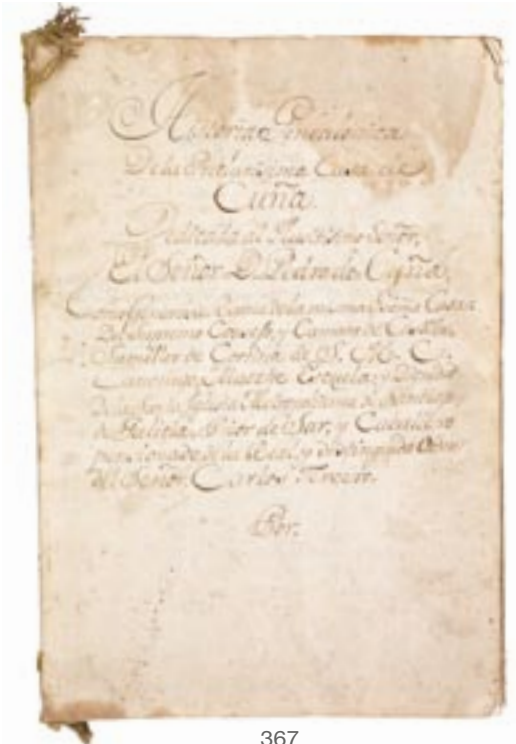 Historia Genealogica
De la Preclarisima Casa de
Cuña
Dedicada al Ilustrisimo Señor,
El Señor D. Pedro de Cuña,
de la misma Casa:
Del Supremo Consejo, y Camara de Castilla,
Sumiller de Cortina de S. M. C.
Canonigo, Maestre Escuela, y
la Iglesia Metropolitana de Santiago
de Galicia, Prior de Sar, y Caballero
pensionado de la Real, y distinguida Orden
del Señor Carlos Tercero.
Por.
367